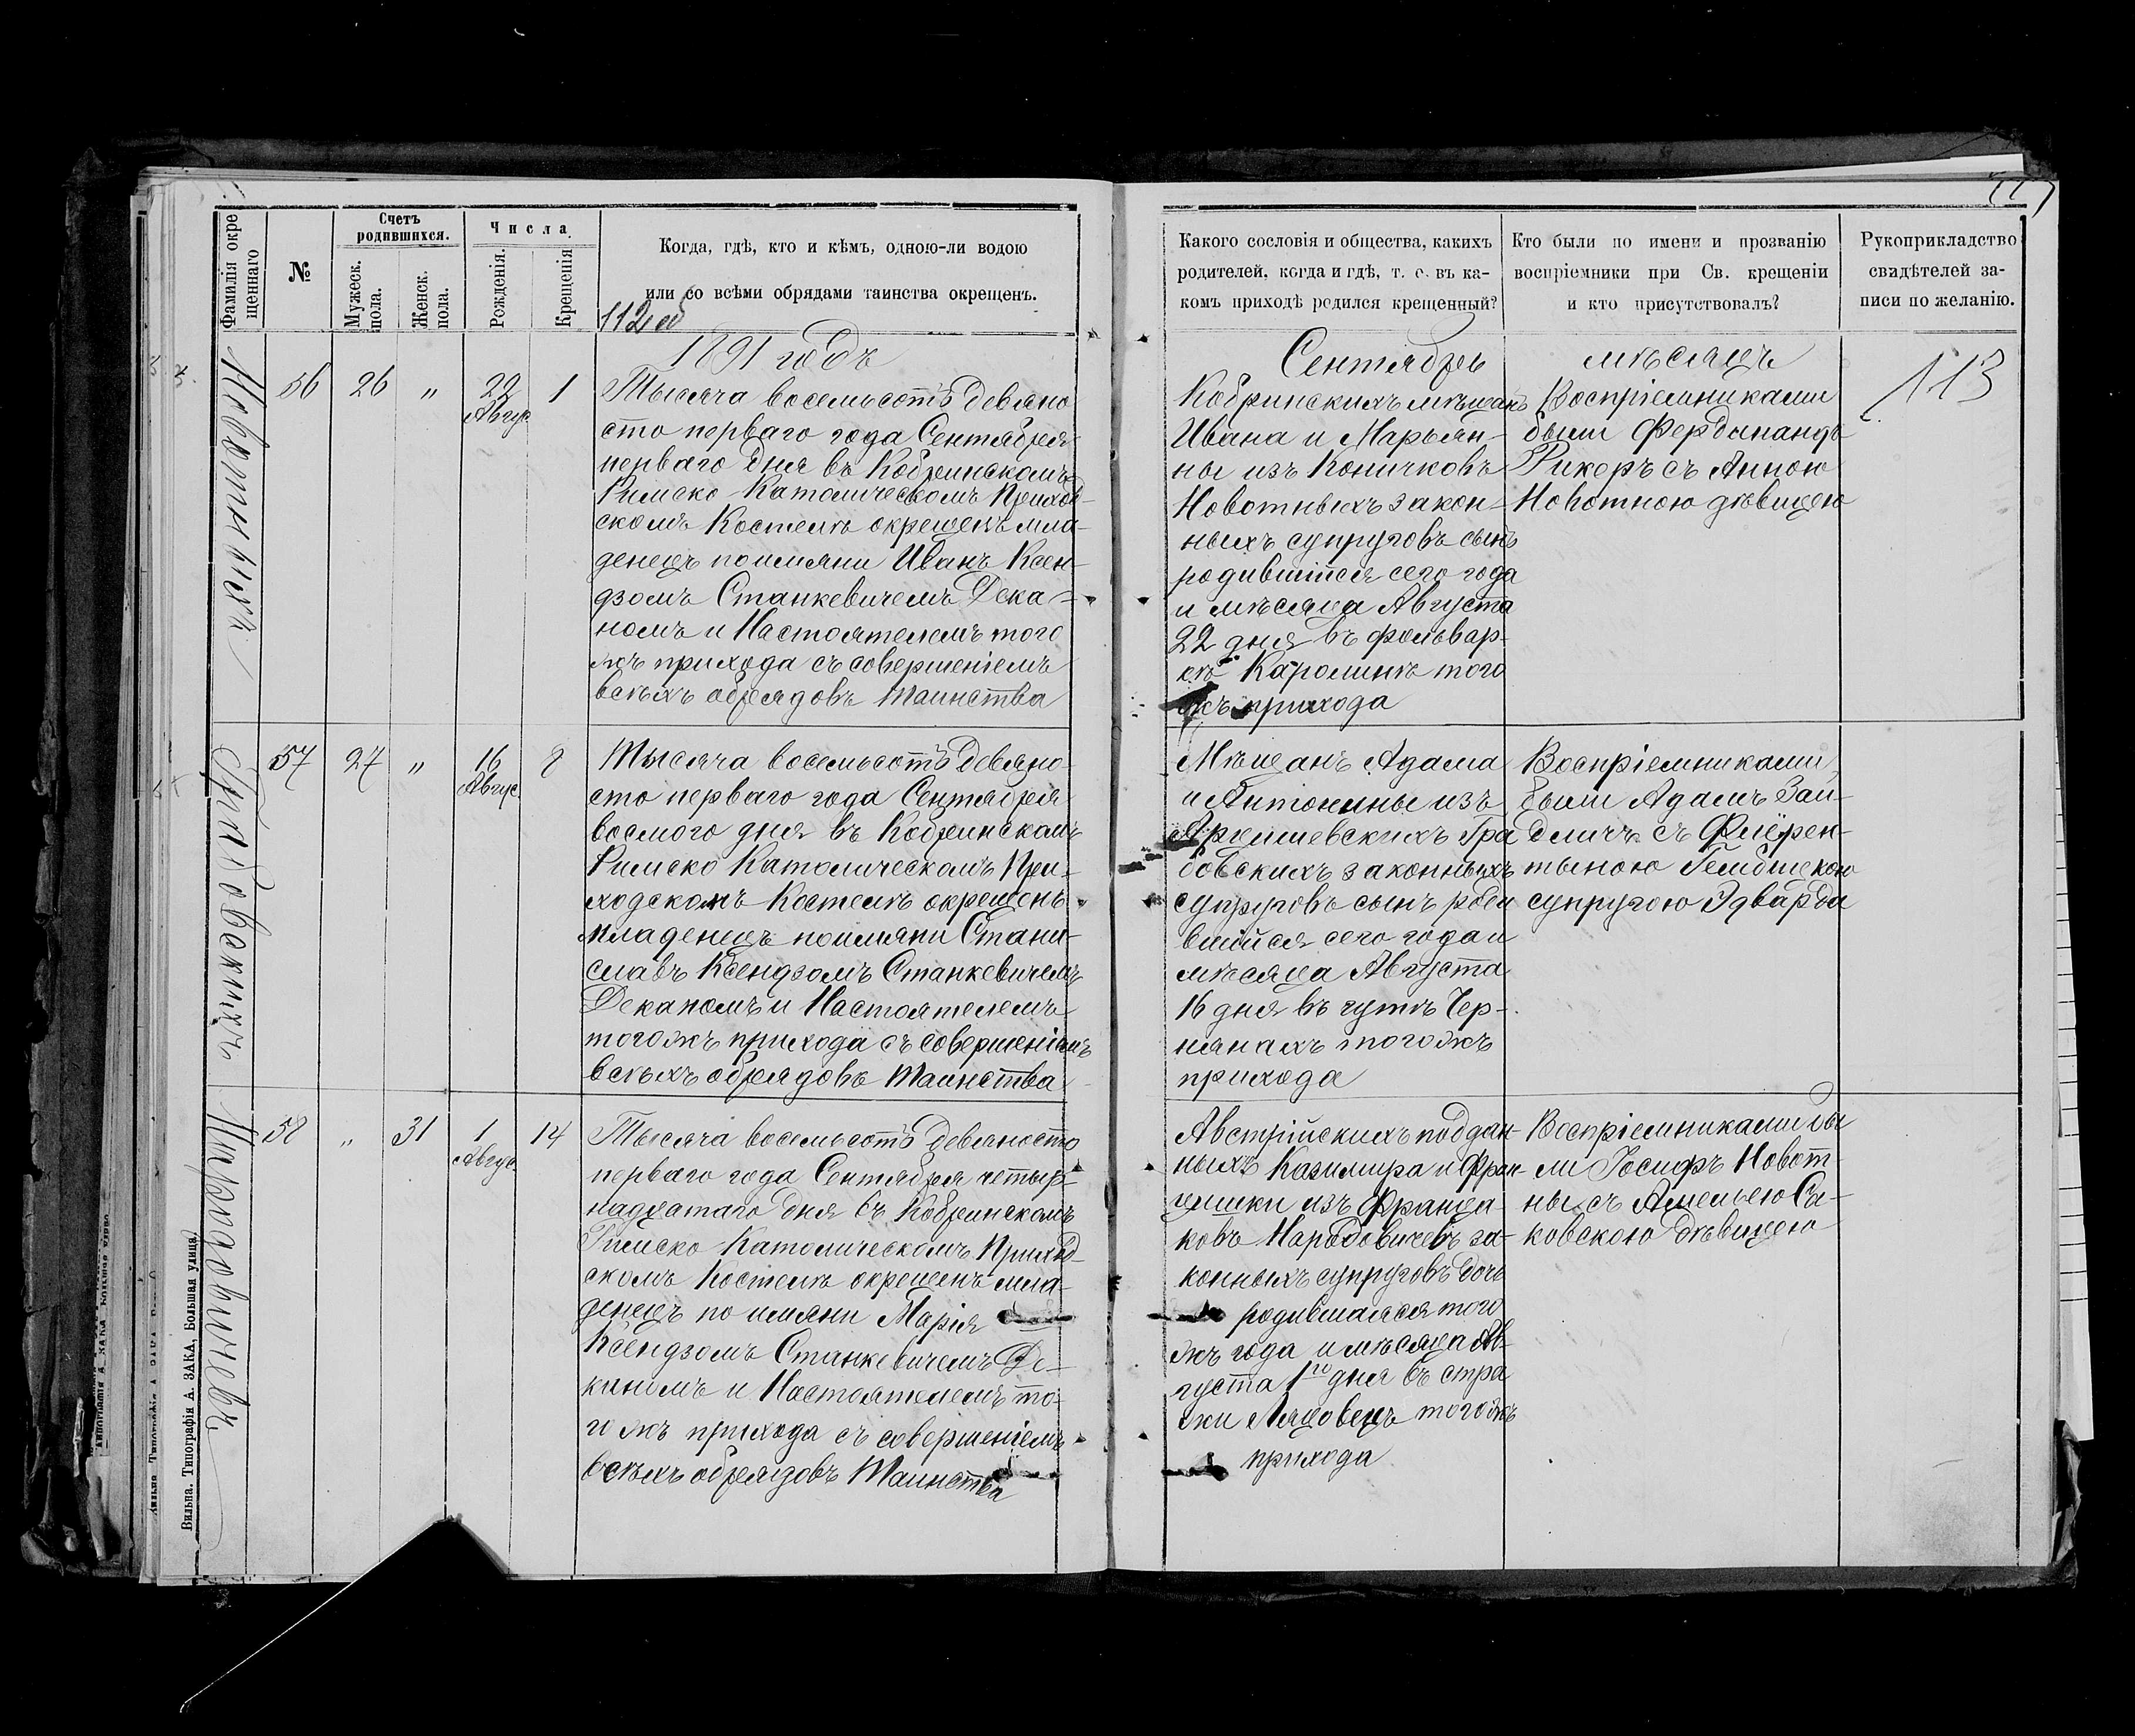 Фамилія окре
щеннаго
№
Счетъ
родившихся.
Мужеск.
пола.
Женск.
пола.
Числа
Рожденія.
Крещенія
Когда, гдѣ, кто и кѣмъ, одною-ли водою
или со всѣми обрядами таинства окрещенъ.
112об
1891 годъ
Новотныхъ
56 26 " 22 1
Авгус
Тысяча восемьсотъ девяно
сто перваго года Сентября
перваго дня въ Кобринскомъ
Римско Католическомъ Приход-
скомъ Костелѣ окрещенъ мла-
денецъ поимяни Иванъ Ксен-
дзомъ Станкевичемъ Дека-
номъ и Настоятелемъ того
жъ прихода съ совершеніемъ
всѣхъ обрядовъ Таинства
Грабовскихъ
57 27 " 16 8
Авгус.
Тысяча восемьсотъ девяно
сто перваго года Сентября
восмого дня въ Кобринскомъ
Римско Католическомъ При-
ходскомъ Костелѣ окрещенъ
младенецъ поимяни Стани-
славъ Ксендзомъ Станкевичемъ
Деканомъ и Настоятелемъ
тогожъ прихода съ совершеніемъ
всѣхъ обрядовъ Таинства
Народовичевъ
58 " 31 1 14
Авгус
Тысяча восемьсотъ девяносто
перваго года Сентября четыр-
надцатаго дня въ Кобринскомъ
Римско Католическомъ Приход-
скомъ Костелѣ окрещенъ мла-
денецъ по имяни Марія
Ксендзомъ Станкевичемъ Де-
каномъ и Настоятелемъ то-
го жъ прихода съ совершеніемъ
всѣхъ обрядовъ Таинства
Вильна. Типографія А. ЗАКА, Большая улица
Какого сословія и общества, какихъ
родителей, когда и гдѣ, т. е. въ ка-
комъ приходѣ родился крещенный?
Кто были по имени и прозванію
воспріемники при Св. крещеніи
и кто присутствовалъ?
Рукоприкладство
свидѣтелей за-
писи по желанію.
Сентябрь мѣсяцъ
113
Кобринскихъ мѣщанъ
Ивана и Марьян-
ны изъ Коничковъ
Новотныхъ закон-
ныхъ супруговъ сынъ
родившійся сего года
и мѣсяца Августа
22 дня въ фольвар-
кѣ Каролинѣ того
жъ прихода
Воспріемниками
были Фердинандъ
Рикоръ съ Анною
Новотною дѣвицею
Мѣщанъ Адама
и Антонины изъ
Гра
бовскихъ законныхъ
супруговъ сынъ роди
вшійся сего года и
мѣсяца Августа
16 дня въ хутѣ Чер-
нянахъ тогожъ
прихода
Воспріемниками
были Адамъ Зай-
дличъ съ Флёрен-
тыною
супругою Эдварда
Австрійскихъ поддан-
ныхъ Казимира и Фран-
цишки изъ Франца-
ковъ Народовичевъ за-
конныхъ супруговъ дочь
родившаяся того
жъ года и мѣсяца Ав-
густа 1го дня въ стра
жи Ляховецъ тогожъ
прихода
Воспріемниками бы
ли Іосифъ Новот-
ны съ Амельею Са-
ковскою дѣвицею